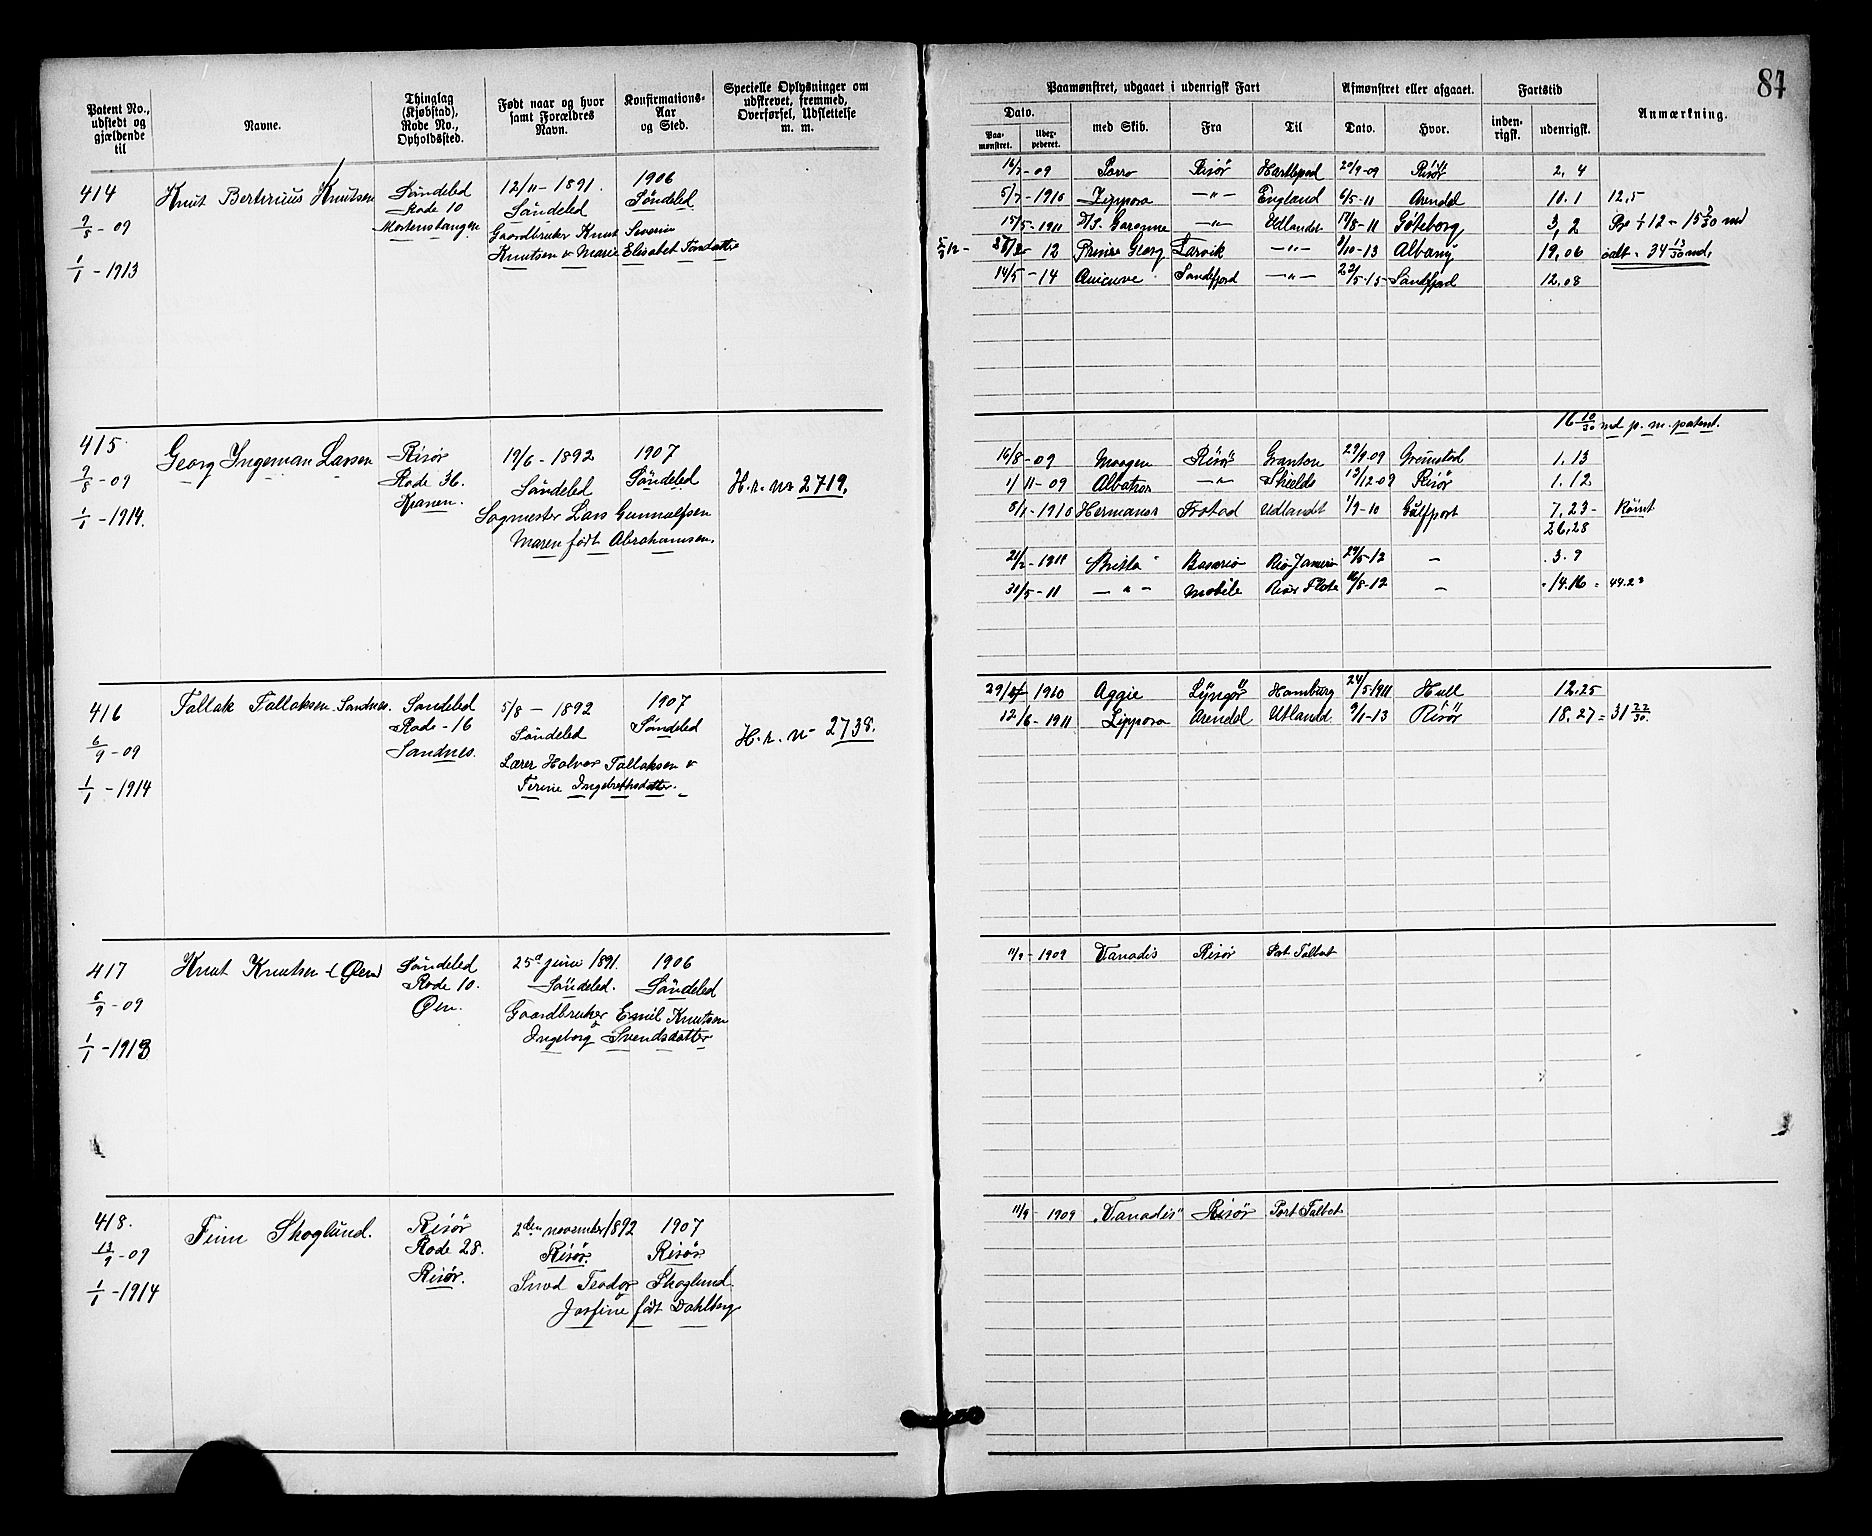 84
Patent No., udstedt og gjældende til
Navne.
Thinglag (Kjøbstad), Rode No., Opholdssted.
Født naar og hvor samt Forældres Navn.
Konfirmations-Aar og Sted.
Specielle Oplysninger om udskrevet, fremmed, Overførsel, Udslettelse m. m.
Paamønstret, udgaaet i udenrigsk Fart
Afmønstret eller afgaaet.
Fartstid
Anmærkning.
Dato.
Paamønstret.
med Skib.
Fra
Til
Dato.
Hvor.
indenrigsk.
udenrigsk.
414
2/8 - 09
1/1 - 1913
Knut Bertinius Knutsen
Søndeled
Rode 10
Mortenstangen
12/11 - 1891.
Søndeled
Gaardbruker Knut Severin
Knutsen & Marie Elisabet
1906
Søndeled
16/7 - 09 Risør 20/9-09 Risør 2, 4
5/7 - 1910 Zippora —"— England 6/5-11 Arendal 10.1 12,5
15/5-1911 D/S. Garonne —"— Udlandet 17/8-11 Göteborg 3, 2
12 Prins Georg Larvik —"— 8/10-13 19,06
14/5 - 14 Sandefjord —"— 22/5-15 Sandefjord 12.08
415
2/8 - 09
1/1 - 1914.
Georg Ingeman Larsen
Risør
Rode 36.
Kranen.
19/6 - 1892
Søndeled
Sagmester Lars Gunnulfsen
Maren født Abrahamsen.
1907
Søndeled
H. r. nr 2719.
16 10/30 md p. m. patent.
16/8 - 09 Risør Granton 29/9-09 Grimstad 1.13
1/11-09 Albatros —"— Shields 13/12-09 Risør 1.12
8/1-1910 Hermanos Udlandet 1/9-10 Gulfport 7.23- Rømt
26.28
21/2-1911 29/5-12 – 3.9
31/5-11 —"— Mobile 16/8-12 – 14.16 = 44.23
416
6/9 - 09
1/1 - 1914
Tallak Tallaksen Sandnes.
Søndeled
Rode - 16
Sandnes.
5/8 - 1892
Søndeled
Lærer Halvor Tallaksen &
Terine Ingebrethsdatter.
1907
Søndeled
H. r. nr 2738.
1910 Aggie Lyngør Hamburg 24/5-1911 Hull 12.25
12/6-1911 Zippora Arendal Utland. 9/1-13 Risør 18.27 = 31 22/30.
417
6/9 - 09
1/1 - 1913
Knut Knutsen Øen
Søndeled
Rode 10.
Øen.
25de juni 1891.
Søndeled.
Gaardbruker Emil Knutsen
& Ingeborg Svendsdatter
1906
Søndeled
11/9 - 1909 Vanadis Risør Port Talbot
418.
13/9 - 09
1/1 - 1914
Finn Skoglund.
Risør
Rode 28.
Risør.
2den november 1892
Risør.
Smed Teodor Skoglund
& Josfine født Dahlberg
1907
Risør.
11/9 - 1909 „Vanadis" Risør Port Talbot